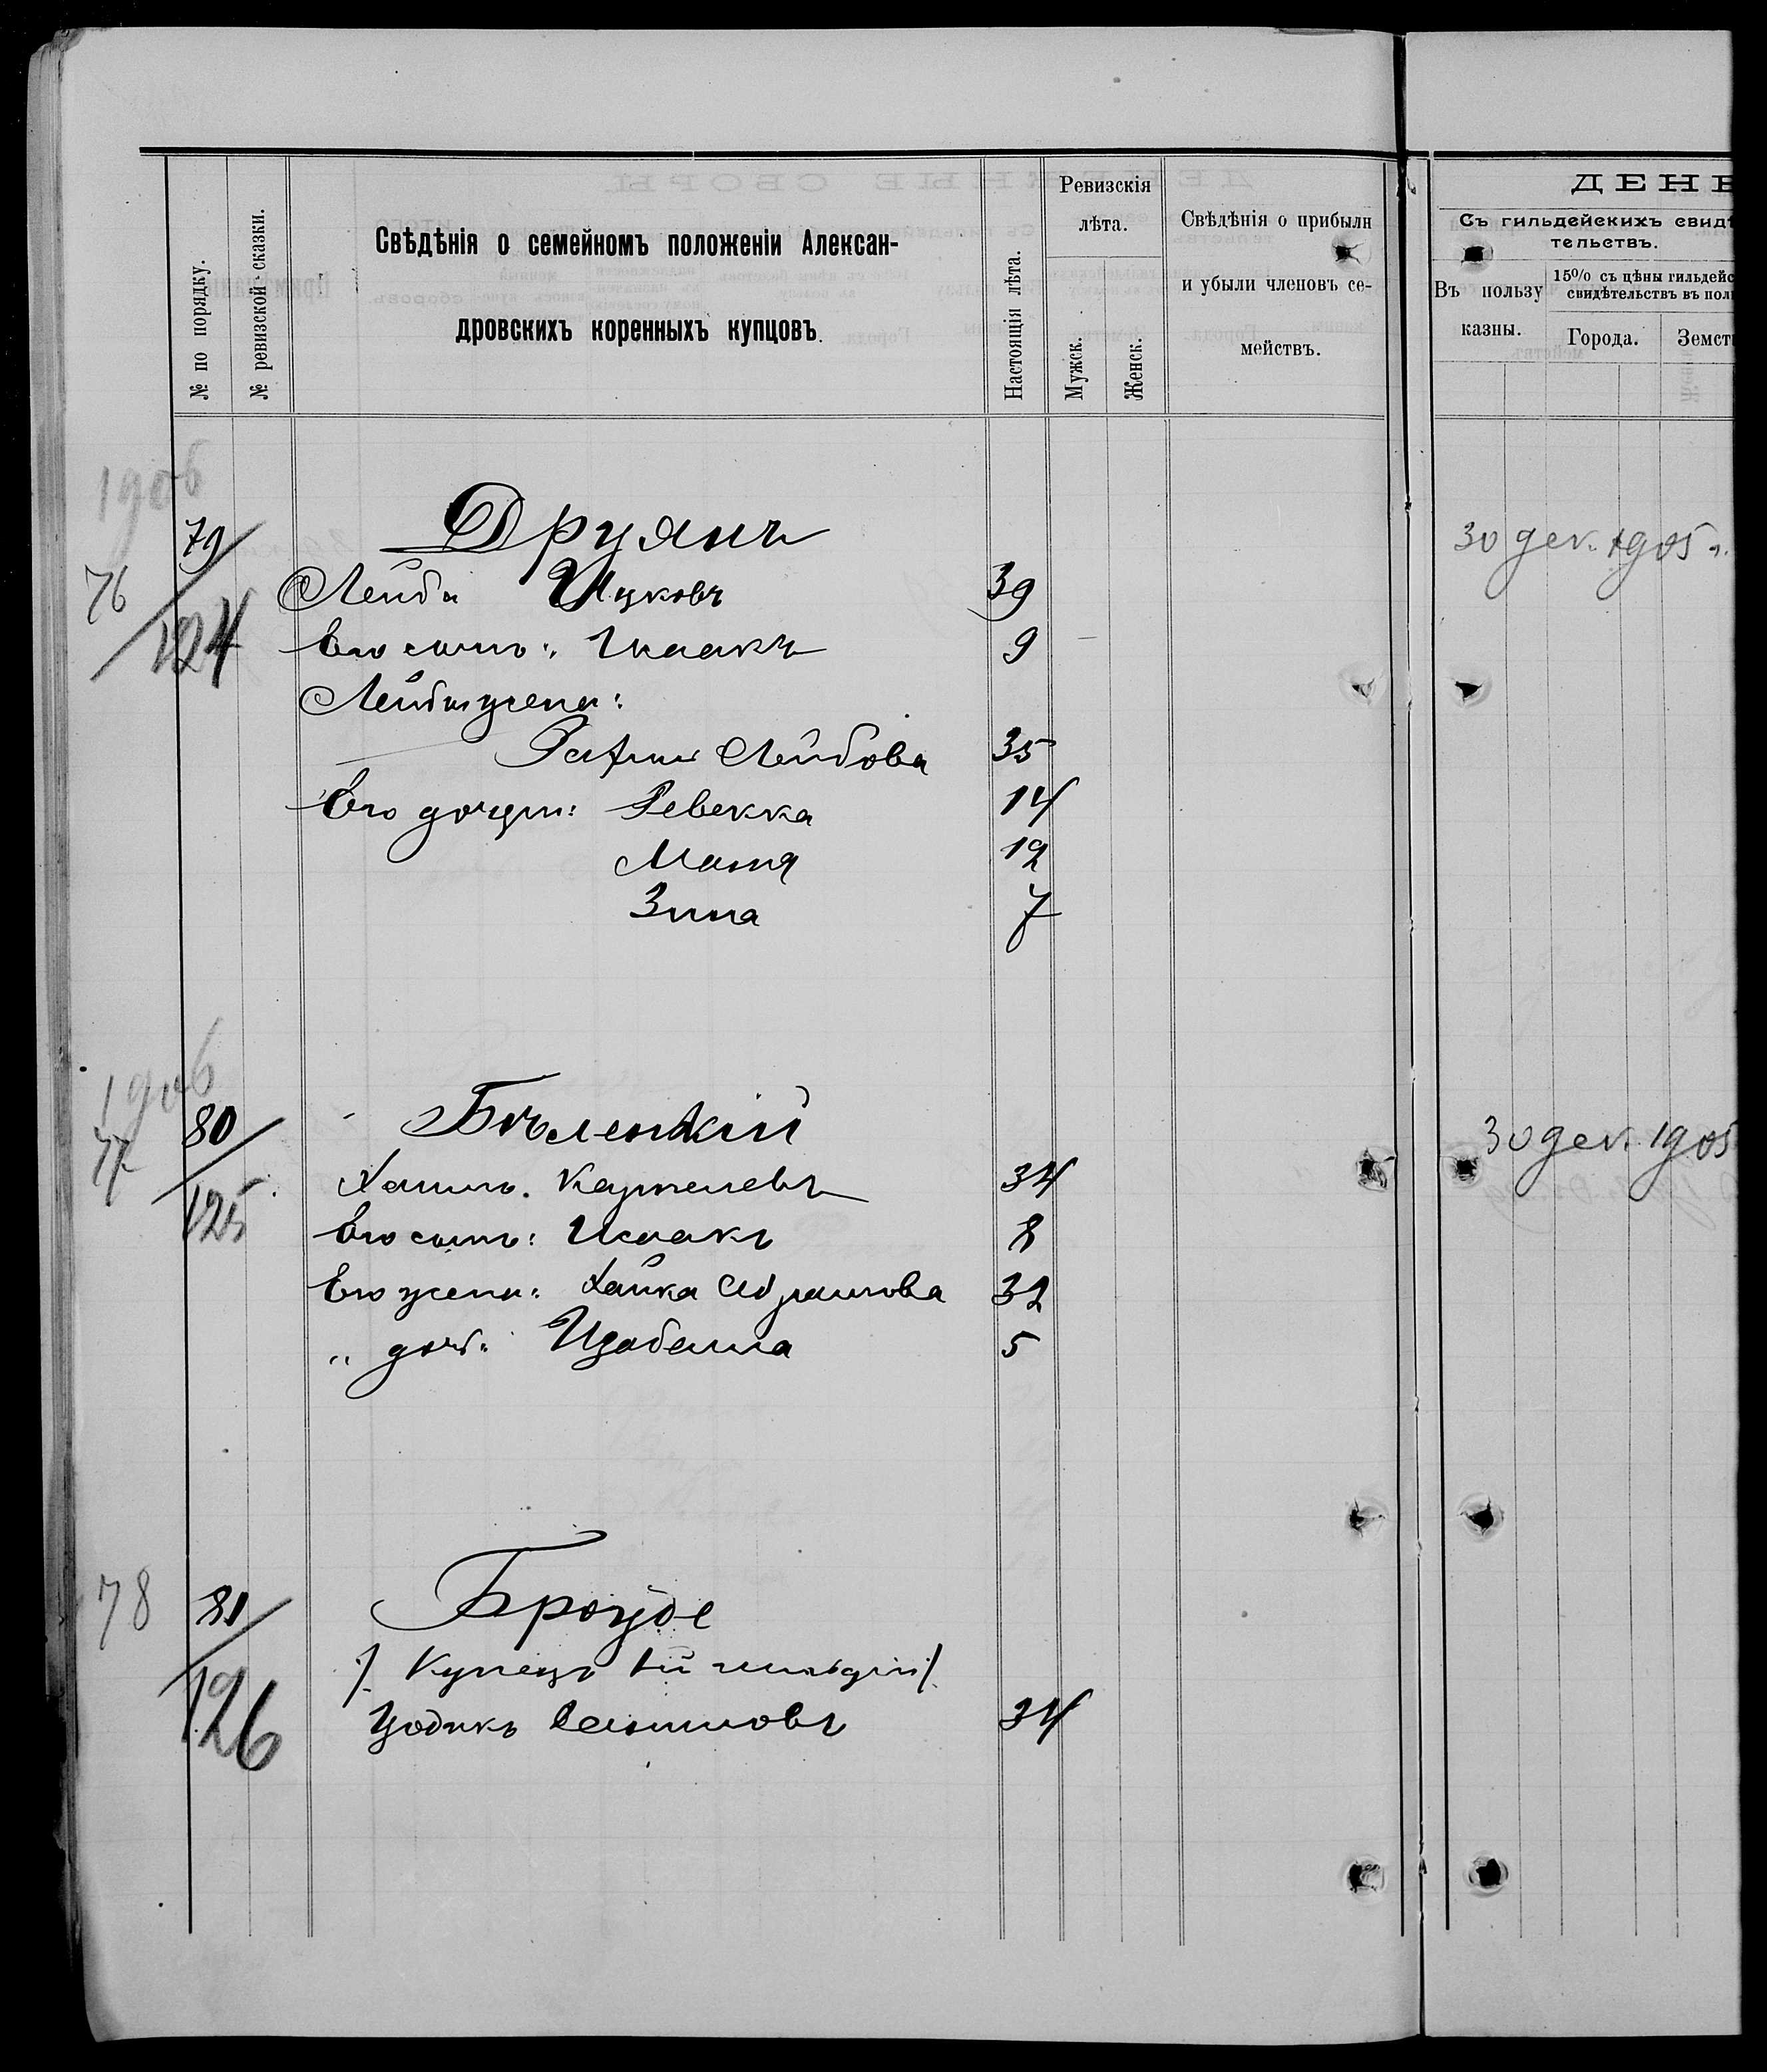 № по порядку.
№ ревизской сказки.
Свѣдѣнія о семейномъ положеніи Алексан-
дровскихъ коренныхъ купцовъ.
Настоящія лѣта.
Ревизскія
лѣта.
Мужск.
Женск.
Свѣдѣнія о прибыли
и убыли членовъ се-
мействъ.
ДЕНЕ
Съ гильдейскихъ свидѣ
тельствъ.
Въ пользу
казны.
15% съ цѣны гильдейс
свидѣтельствъ въ пол
Города.
Земст
1906
79
76
124
Друянъ
30 дек. 1905 г.
Лейба Ицковъ 39
Его сынъ: Исаакъ 9
Лейбы жена:
Лейбова 35
Его дочери: Ревекка 14
Маша 12
Зина 7
1906
80
77
125
Бѣленькій
30 дек. 1905
Хаимъ. 34
Его сынъ: Исаакъ 8
Его жена: Хайка Абрамова 32
" дочь: Изабелла 5
78
81
126
Броуде
/. Купецъ 1й гильдіи /.
Цодикъ 34